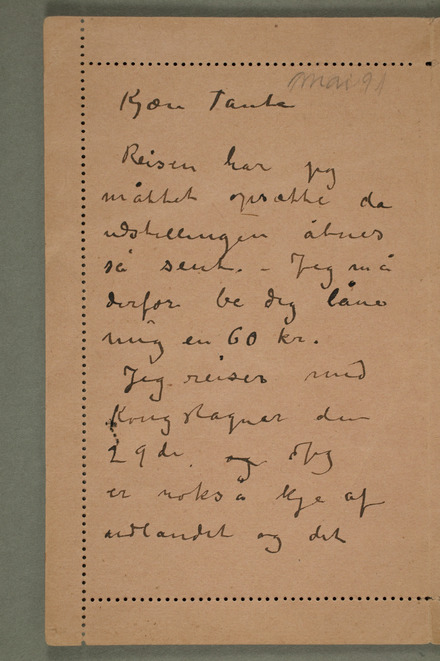 mai 91
Kjære Tante
Reisen har jeg
måttet opsætte da
udstillingen åbnes
så sent. – Jeg må
derfor be dig låne
mig en 60 kr.
Jeg reiser med
Kong Ragnar den
29de og Jeg
er nokså kje af
udlandet og det